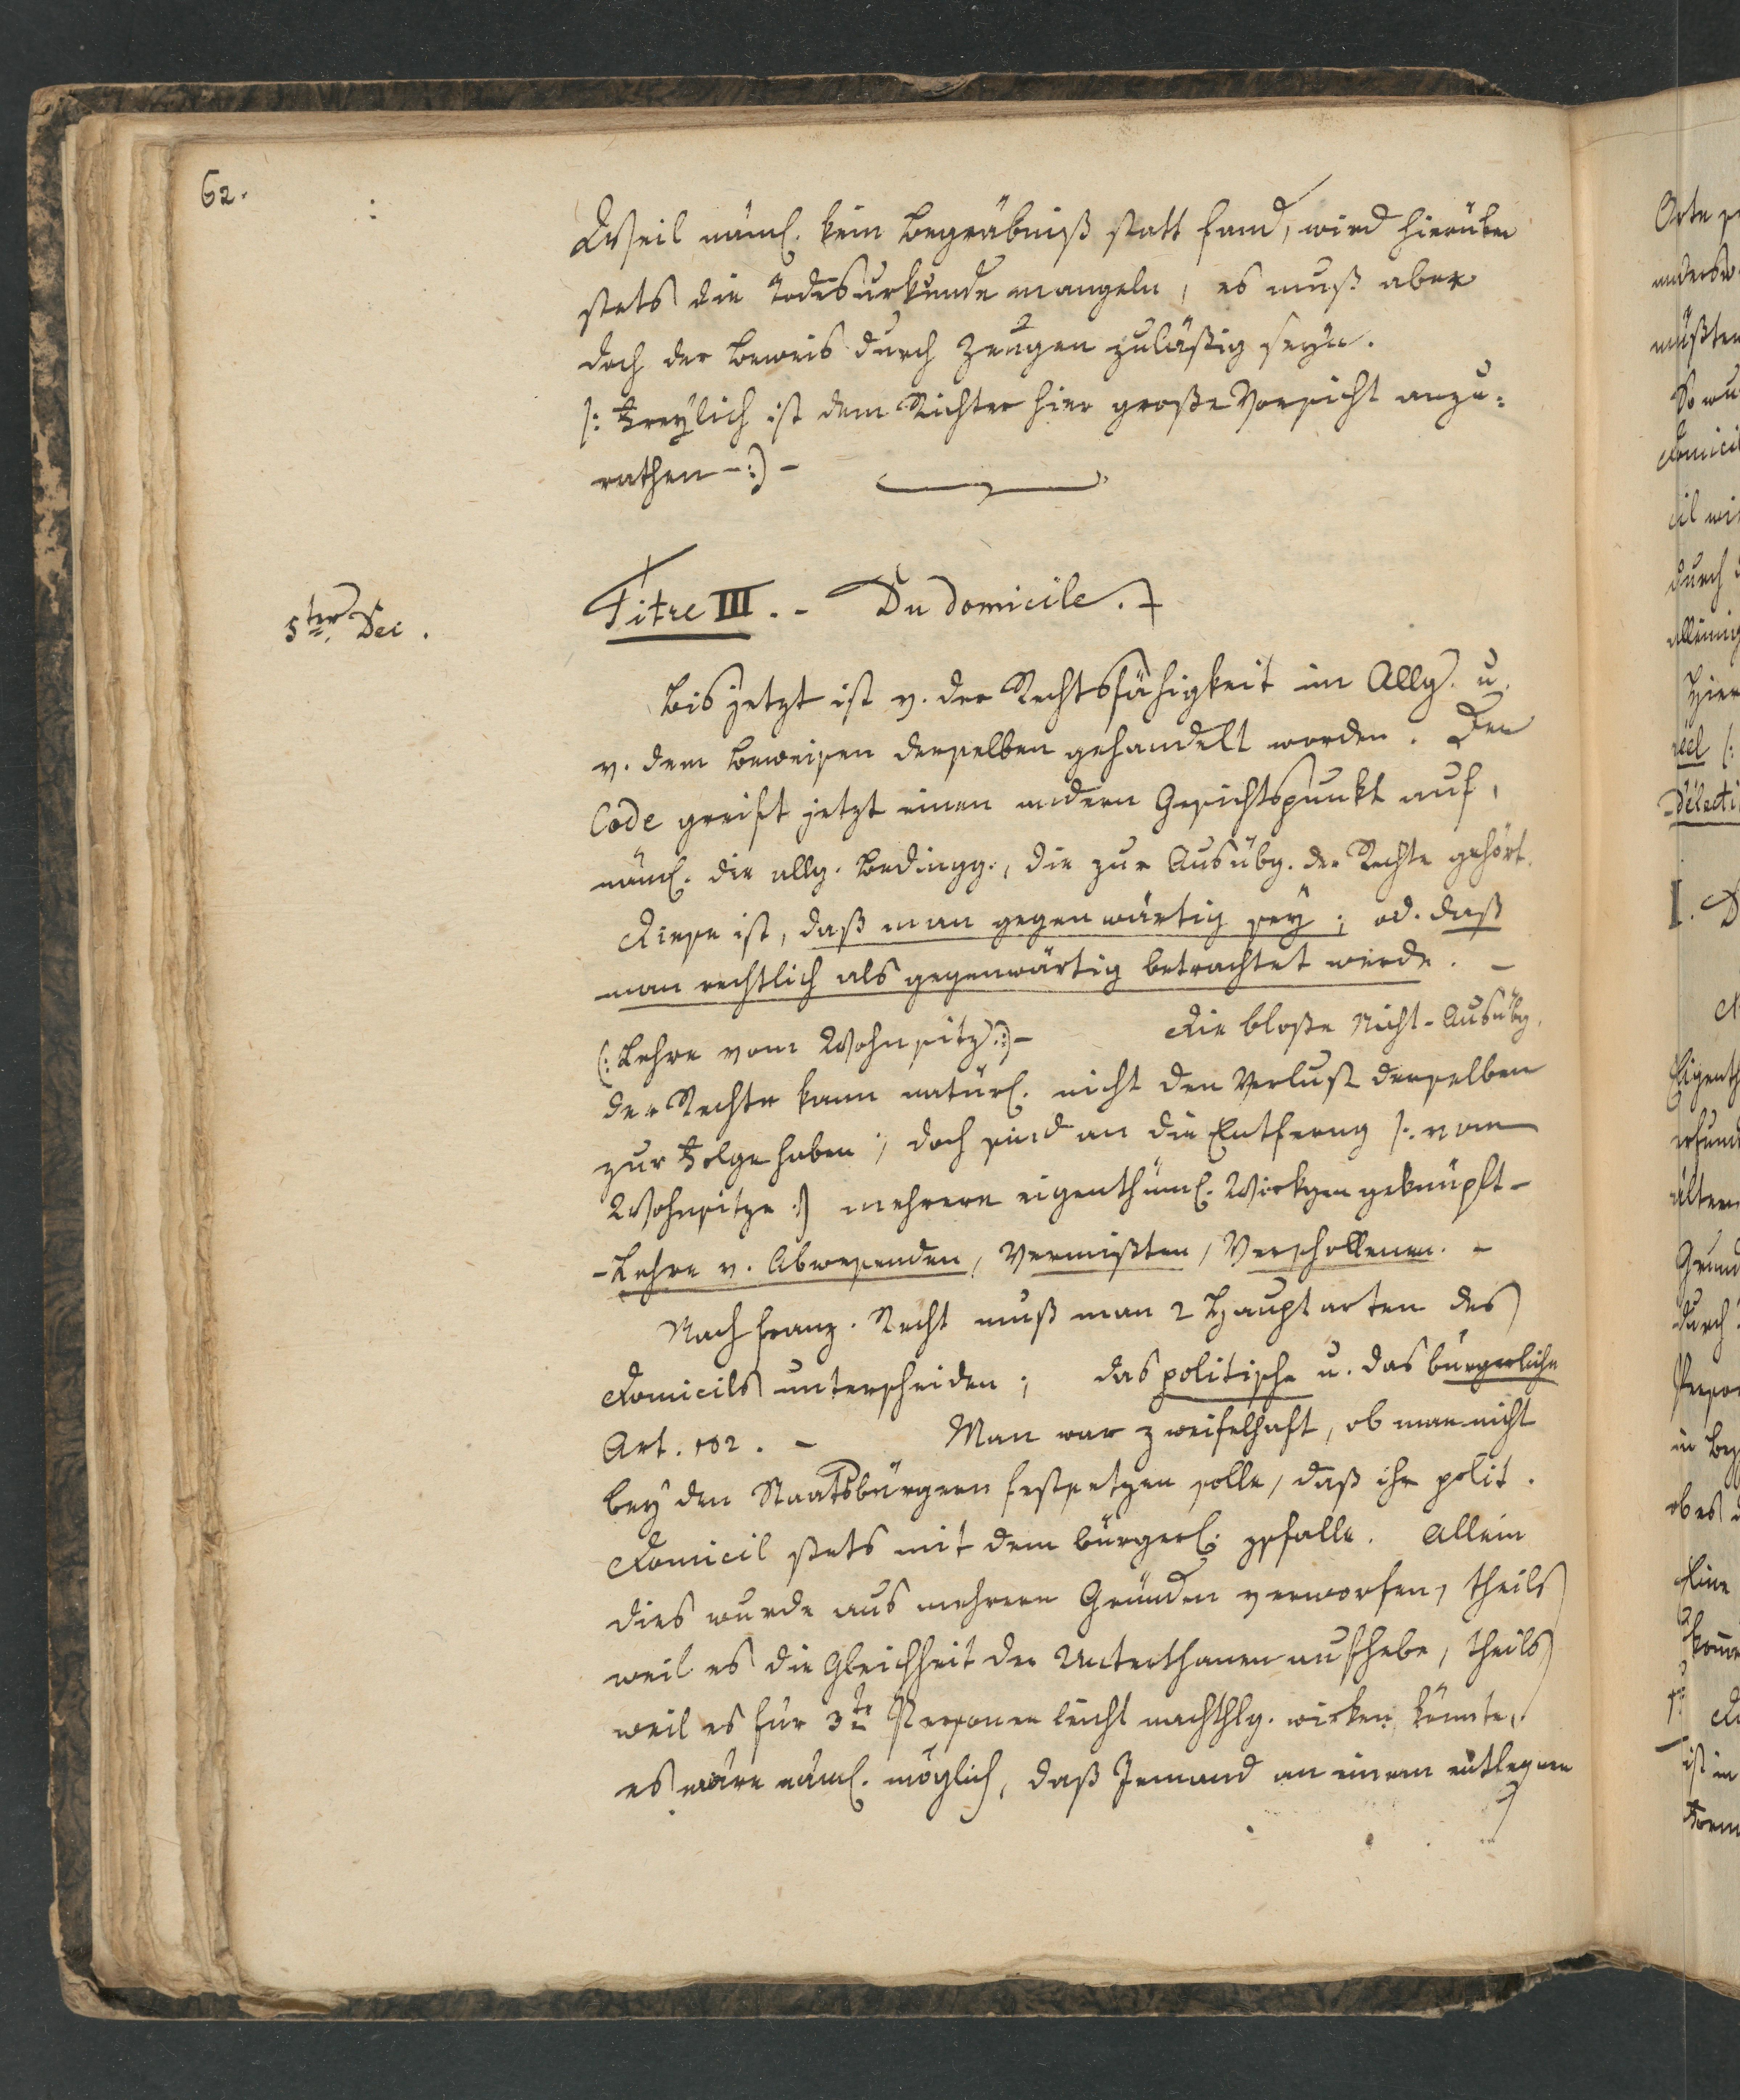 62.
Weil näml. kein Begräbniß statt fand, wird hierüber
stets die Todesurkunde mangeln, es muß aber
doch der Beweis durch Zeugen zuläßig seyn.
/: Freylich ist dem Richter hier große Vorsicht anzu-
rathen -:) -
5ter Dec.
Titre III. - Du domicile. -
Bis jetzt ist v. der Rechtsfähigkeit im Allg. u.
v. dem Beweisen derselben gehandelt worden. Der
Code greift jetzt einen andern Gesichtspunkt auf,
näml. die allg. Bedingg., die zur Ausübg. der Rechte gehört.
Diese ist, daß man gegenwärtig sey; od. daß
man rechtlich als gegenwärtig betrachtet werde. -
(: Lehre vom Wohnsitz :) - Die bloße Nicht-Ausübg.
der Rechte kann natürl. nicht den Verlust derselben
zur Folge haben; doch sind an die Entferng /: vom
Wohnsitze :) mehrere eigenthüml. Wirkgen geknüpft -
- Lehre v. Abwesenden, Vermißten, Verschollenen. -
Nach franz. Recht muß man 2 Hauptarten des
Domicils unterscheiden; das politische u. das bürgerliche
Art. 102. - Man war zweifelhaft, ob man nicht
bey den Staatsbürgern festsetzen solle, daß ihr polit.
Domicil stets mit dem bürgerl. zsfalle. Allein
dies wurde aus mehrern Gründen verworfen, theils
weil es die Gleichheit der Unterthanen aufhebe, theils
weil es für 3te Personen leicht nachthlg. wirken könnte,
es wäre näml. möglich, daß Jemand an einem entlegnen